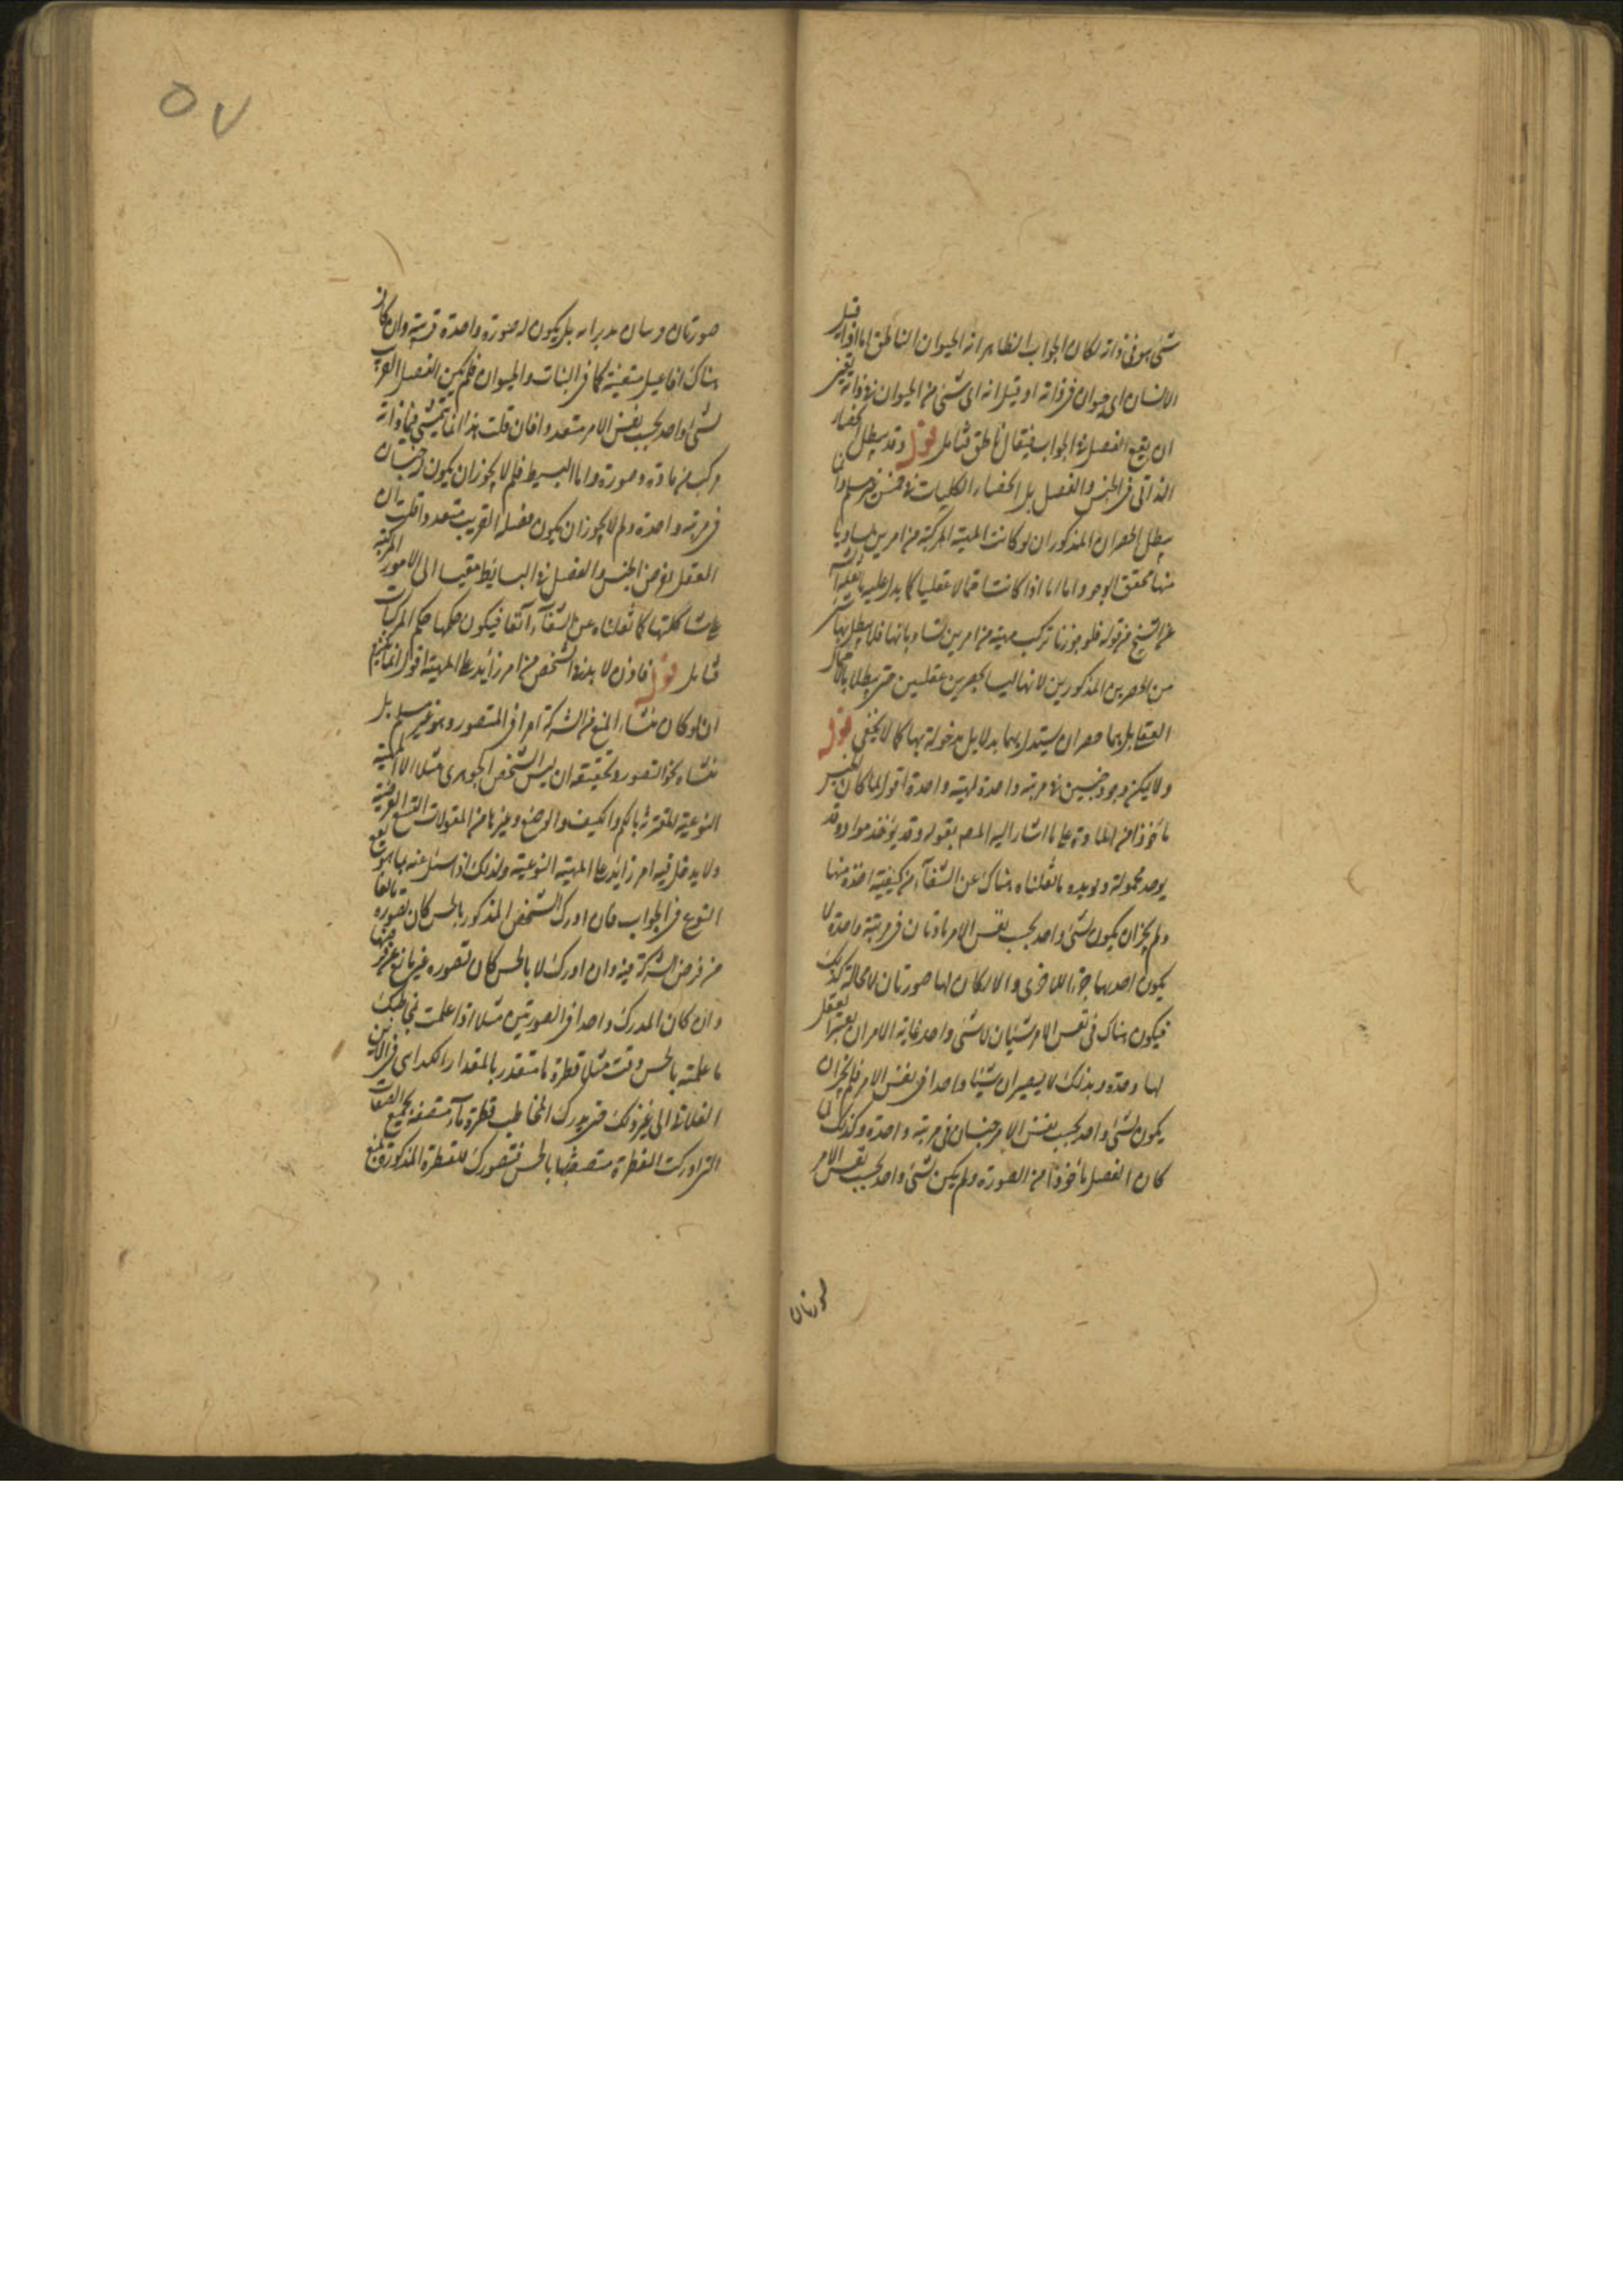 شئ هو في ذاته لكان الجواب الظاهر انه الحيوان الناطق اما اذا قيل
الانسان اى حيوان فى ذاته او قيل انه اى شئ من الحيوان فى ذاته يتعين
ان يقع الفصل فى الجواب فيقال ناطق فتأمل قوله وقد يبطل انحصار
الذاتى فى الجنس والفصل بل انحصار الكليات فى خمس
يبطل الحصران المذكوران لو كانت المهية المركبة من امرين متساويين
منها محقق الوجود واما اذا كانت احتمالا عقليا كما يدل عليه ما نقله
عن الشيخ من قوله فلو جوزنا تركب مهية من امرين متساويين لها فلا يبطل بها شئ
من الحصرين المذكورين لانهما ليسا بحصرين عقليين حتى يبطلا بالاحتمال
العقلى بل هما حصران يستدل عليهما بدلايل مدخولة بها كما لا يخفى قوله
ولا يمكن وجود جنسين فى مرتبة واحدة لمهية واحدة اقول لما كان الجنس
مأخوذا من المادة على ما اشار اليه المص بقوله وقد يؤخذ مواد وقد
يوجد محمولة ويؤيده ما نقلناه هناك عن الشفآء من كيفية اخذه منها
ولم يجز ان يكون لشئ واحد بحسب نفس الامر مادتان فى مرتبة واحدة لا
يكون احديهما جزءا للاخرى والا لكان لها صورتان لا محالة كذلك
فيكون هناك فى نفس الامر شيئان لا شئ واحد غاية الامر ان يعتبر العقل
لها وحدة وبذلك لا يصيران شيئا واحدا فى نفس الامر فلم يجز ان
يكون لشئ واحد بحسب نفس الامر جنسان فى مرتبة واحدة وكذلك لما
كان الفصل مأخوذا من الصورة ولم يكن لشئ واحد بحسب نفس الامر
صورتان
٥٧
صورتان بل يكون له صورة واحدة قريبة وان كان
هناك افاعيل متعينة كما فى النبات والحيوان فلم يكن الفصل القريب
لشئ واحد بحسب نفس الامر متعددا فان قلت هذا انما يتمشى فيما ذاته
مركب من مادة وصورة واما البسيط فلم لا يجوز ان يكون له جنسان
فى مرتبة واحدة ولم لا يجوز ان يكون فصله القريب متعددا قلت ان
العقل يفرض الجنس والفصل فى البسائط مقيسا الى الامور المركبة
على شاكلتها كما نقلناه عن الشفآء آنفا فيكون حكمها حكم المركبات
فتأمل قوله فاذن لا بد فى الشخص من امر زايد على المهية اقول انما يتم
ان لو كان منشاء المنع من الشركة امرا فى المتصور وهو غير مسلم بل
منشاه نحو التصور وتحقيقه ان ليس الشخص الجوهرى مثلا الا المهية
النوعية المقترنة بالكم والكيف والوضع وغيرها من المقولات التسع العرضية
ولا يدخل فيه امر زايد على المهية النوعية ولذلك اذا سئل عنه بما هو يقع
النوع فى الجواب فان ادرك الشخص المذكور بالحس كان تصوره مانعا
من فرض الشركة فيه وان ادرك لا بالحس كان تصوره غير مانع عن فرضها
وان كان المدرك واحدا فى الصورتين مثلا اذا علمت مخاطبك
ما علمته بالحس وقت مثلا قطرة ما متقدر بالمقدار الكذاى فى الاين
الفلانى الى غير ذلك حتى يدرك المخاطب قطرة مآء متصفة بجميع الصفات
التى ادركت القطرة متصفة بها بالحس فتصورك للقطرة المذكورة يمنع